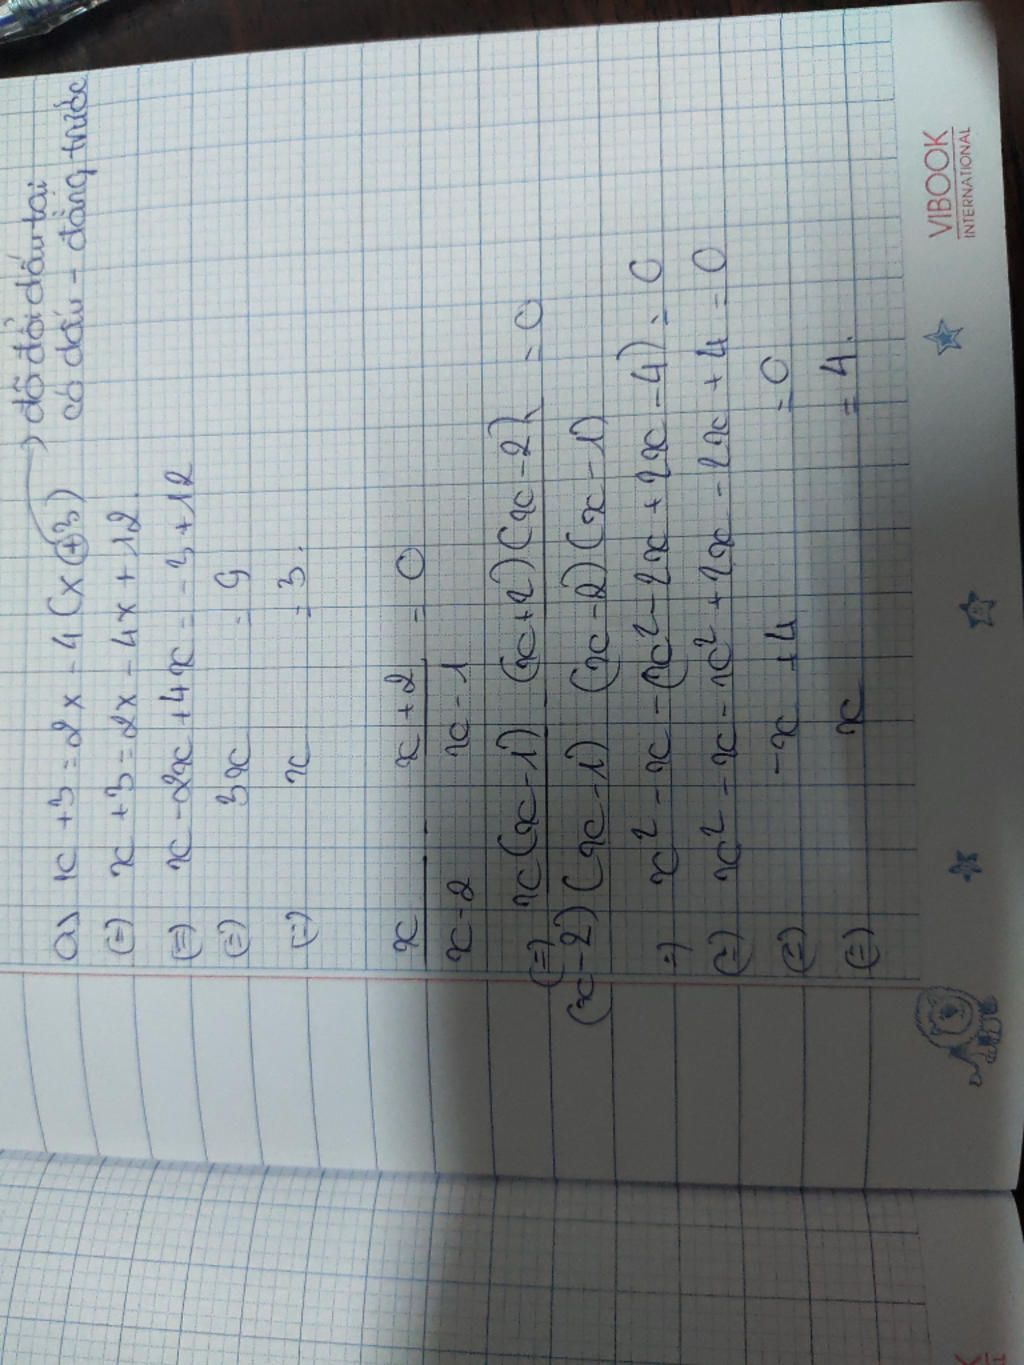 a) x + 3 = 2x - 4 (x + 3) → đổi dấu tại
có dấu - đằng trước
(=) x + 3 = 2x - 4x + 12.
(=) x - 2x + 4x = -3 + 12
(=) 3x = 9
(=) x = 3.
x/(x-2) - (x+2)/(x-1) = 0
(=) x(x-1)/((x-2)(x-1)) - (x+2)(x-2)/((x-2)(x-1)) = 0
=) x² - x - (x² - 2x + 2x - 4) = 0
(=) x² - x - x² + 2x - 2x + 4 = 0
(=) -x + 4 = 0
(=) x = 4.
VIBOOK
INTERNATIONAL